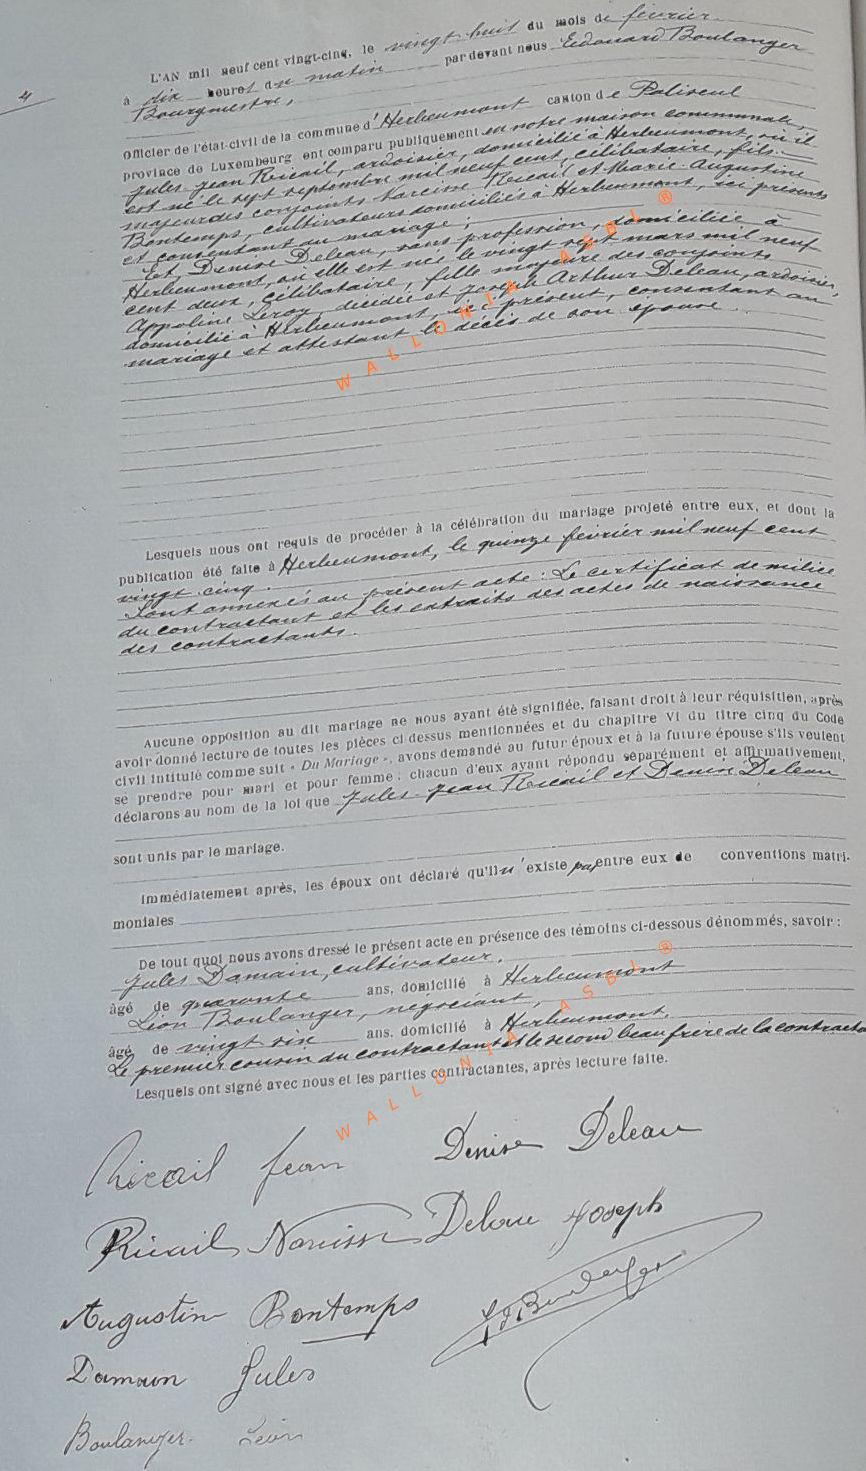 4
L'AN mil neuf cent vingt-cinq, le vingt-huit du mois de février
à dix heures du matin par devant nous Edouard Boulanger
Bourgmestre,
officier de l'état-civil de la commune d'Herbeumont canton de Paliseul
province de Luxembourg ont comparu publiquement en notre maison communale,
Jules-Jean Ricail, ardoisier, domicilié à Herbeumont, où il
est né le sept septembre mil neuf cent, célibataire, fils
majeur des conjoints Narcisse Ricail et Marie-Augustine
Bontemps, cultivateurs domiciliés à Herbeumont, ici présents
et consentant au mariage ;
Et Denise Deleau, sans profession, domiciliée à
Herbeumont, où elle est née le vingt sept mars mil neuf
cent deux, célibataire, fille majeure des conjoints
Appoline Leroy, décédée et Joseph Arthur Deleau, ardoisier,
domicilié à Herbeumont, ici présent, consentant au
mariage et attestant le décès de son épouse.
Lesquels nous ont requis de procéder à la célébration du mariage projeté entre eux, et dont la
publication été faite à Herbeumont, le quinze février mil neuf cent
vingt-cinq.
Sont annexés au présent acte : Le certificat de milice
du contractant et les extraits des actes de naissance
des contractants.
Aucune opposition au dit mariage ne nous ayant été signifiée, faisant droit à leur réquisition, après
avoir donné lecture de toutes les pièces ci dessus mentionnées et du chapitre VI du titre cinq du Code
civil intitulé comme suit « Du Mariage », avons demandé au futur époux et à la future épouse s'ils veulent
se prendre pour mari et pour femme : chacun d'eux ayant répondu séparément et affirmativement,
déclarons au nom de la loi que Jules-Jean Ricail et Denise Deleau
sont unis par le mariage.
Immédiatement après, les époux ont déclaré qu'il n'existe pas entre eux de conventions matri-
moniales
De tout quoi nous avons dressé le présent acte en présence des témoins ci-dessous dénommés, savoir :
Jules Damain, cultivateur,
âgé de quarante ans, domicilié à Herbeumont
Léon Boulanger, négociant,
âgé de vingt six ans, domicilié à Herbeumont.
Le premier cousin du contractant et le second beau frère de la contracta
Lesquels ont signé avec nous et les parties contractantes, après lecture faite.
Ricail Jean Denise Deleau
Ricail Narcisse Deleau Joseph
Augustine Bontemps Ed Boulanger
Damain Jules
Boulanger Léon
WALLONIA ASBL ®
WALLONIA ASBL ®